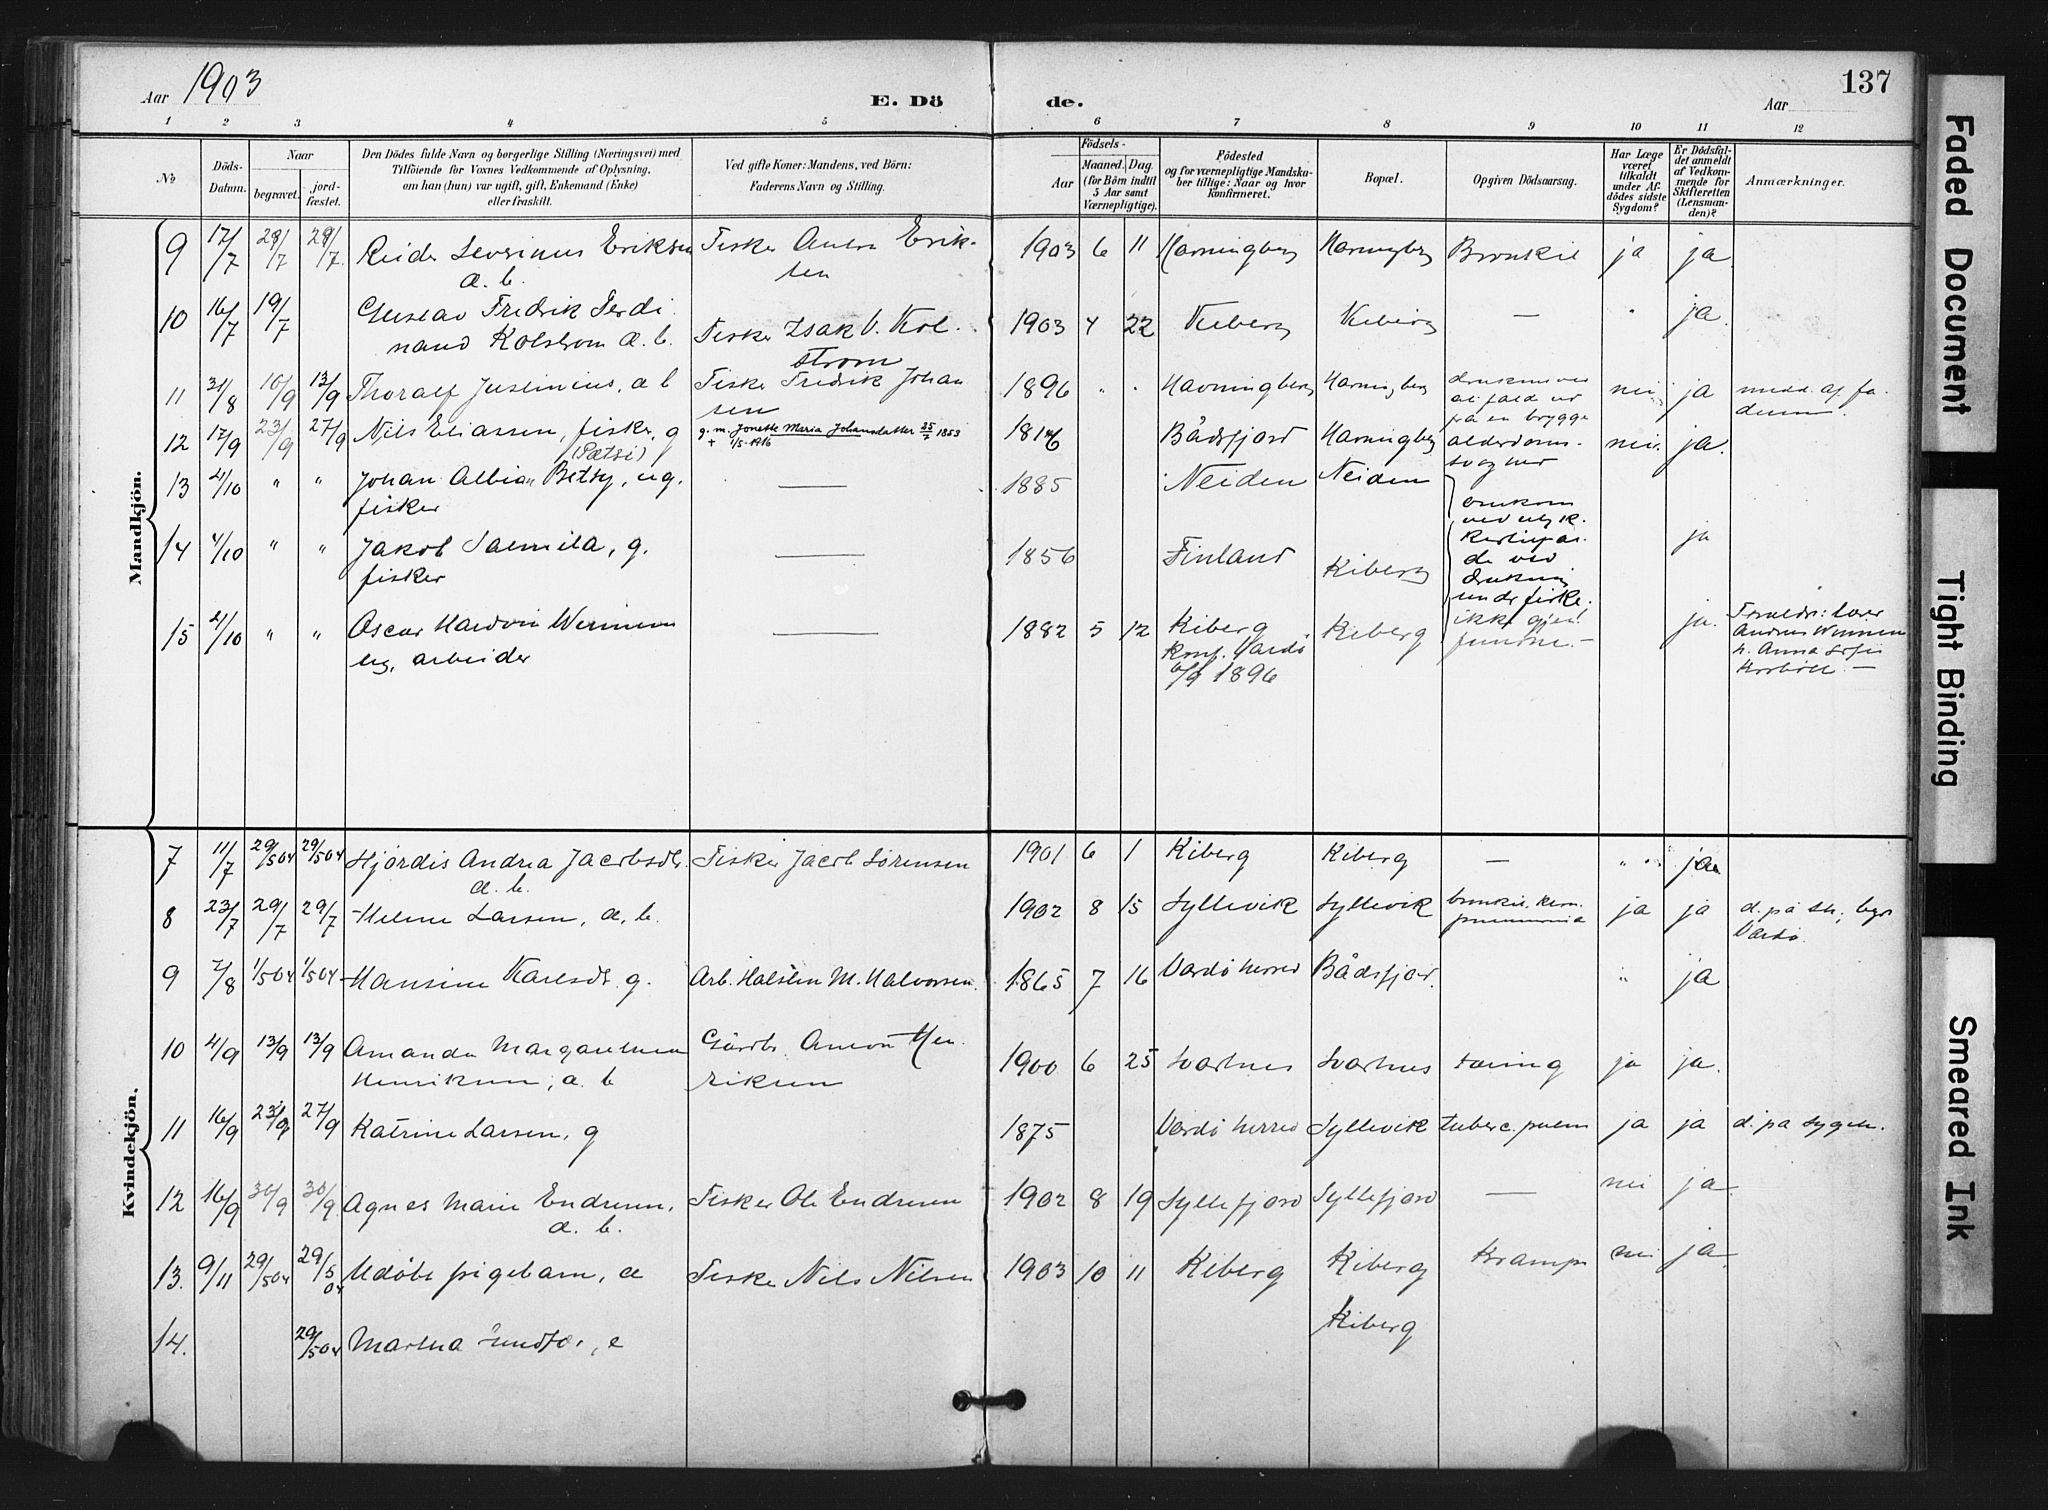 Aar 1903
E. Döde.
137
Aar
1 2 3 4 5 6 7 8 9 10 11 12
No
Döds-Datum.
Naar
begravet.
jord-fæstet.
Den Dödes fulde Navn og borgerlige Stilling (Næringsvei) med
Tilföiende for Voxnes Vedkommende af Oplysning,
om han (hun) var ugift, gift, Enkemand (Enke)
eller fraskilt.
Ved gifte Koner: Mandens, ved Börn:
Faderens Navn og Stilling.
Födsels-
Aar
Maaned. Dag.
(for Börn indtil
5 Aar samt
Værnepligtige).
Födested
og for værnepligtige Mandska-
ber tillige: Naar og hvor
konfirmeret.
Bopæl.
Opgiven Dödsaarsag.
Har Læge
været
tilkaldt
under Af-
dödes sidste
Sygdom?
Er Dödsfal-
det anmeldt
af Vedkom-
mende for
Skifteretten
(Lensman-
den)?
Anmærkninger.
Mandkjön.
9 17/7 28/7 28/7 Reidar Severinus Eriksen Fisker Erik- 1903 6 11 Havningberg Havningberg Bronkit ja ja.
æ. b. sen
10 16/7 19/7 Gustav Fredrik Ferdi- 1903 4 22 Kiberg Kiberg — " ja.
nand Kolstrøm æ. b. Fisker Isak Kol-
strøm
11 31/8 10/9 13/9 Thoralf Justinius, æ b Fisker Fredrik Johan 1896 " " Havningberg Havningberg druknet ved nei ja medd. af fa-
sen at falde ud deren.
paa en brygge
12 17/9 23/9 27/9 Nils Eliassen, fisker, g g. m. Jonette Maria Johansdatter 25/7 1853 1816 Bådsfjord Havningberg alderdoms- nei. ja.
(Pætsi) + 1/5-1916 svaghed
13 21/10 " " Johan Albin Betsy, ug. — 1885 Neiden Neiden
fisker omkom
ved ulyk-
14 4/10 " " Jakob Salmila, g. — 1856 Finland Kiberg ja
fisker de ved
drukning
under fiske.
15 21/10 " " Oscar Hardvin — 1882 5 12 Kiberg Kiberg ikke gjen- ja. Forældr:
ug, arbeider Konf. Vardø fundne. — Andreas
6/9 1896 h. Anna Sofie
Kvindekjön.
7 11/7 29/5 04 29/5 04 Hjørdis Andrea Jacobsdtr. Fisker Jacob Sørensen 1901 6 1 Kiberg Kiberg — " ja
æ. b.
8 23/7 29/7 29/7 Helene Larsen, æ. b. 1902 8 15 Syltevik Syltevik bronkit. ja ja d. på sh;
pneumonia Vardø.
9 7/8 1/5 04 1/5 04 Hansine Karlsdt. g. Arb. Halsten M. Halvorsen. 1865 7 16 Vardø herred Bådsfjord. " ja
10 4/9 13/9 13/9 Amanda Margarethe Gårdbr. Anton Hen- 1900 6 25 Svartnes Svartnes tæring ja ja.
Henriksen, æ. b riksen
11 16/9 23/9 27/9 Katrine Larsen, g 1875 Vardø herred Syltevik tuberc. pulm ja ja d. på sygeh.
12 16/9 30/9 30/9 Agnes Marie Endresen, Fisker Ole Endresen 1902 8 19 Syltefjord Syltefjord — nei ja.
æ. b.
13. 9/11 29/5 04 29/5 04 Udøbt pigebarn, æ Fisker Nils Nilsen 1903 10 11 Kiberg Kiberg Krampe nei ja.
14. 29/5 04 Martha e Kiberg
Faded Document
Tight Binding
Smeared Ink